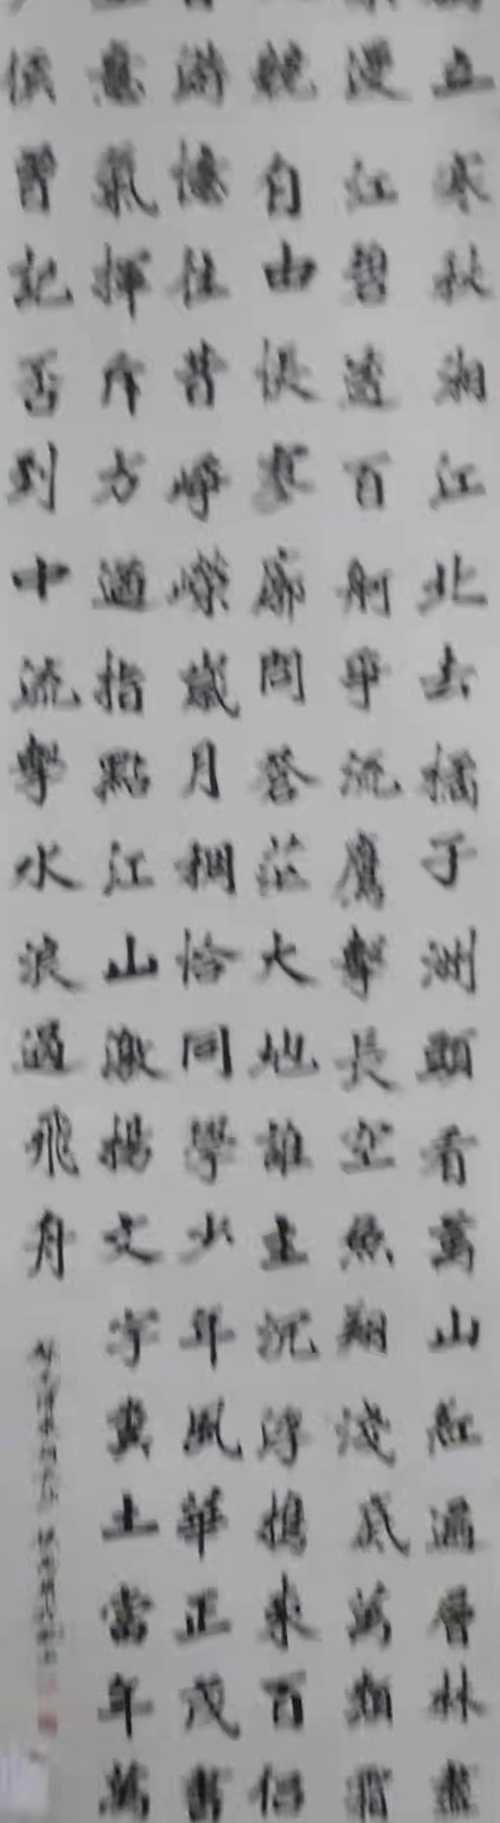 立寒秋湘江北去橘子洲頭看萬山紅遍層林盡
漫江碧透百舸爭流鷹擊長空魚翔淺底萬類霜
競自由悵寥廓問蒼茫大地誰主沉浮攜來百侶
游憶往昔崢嶸歲月稠恰同學少年風華正茂書
意氣揮斥方遒指點江山激揚文字糞土當年萬
侯曾記否到中流擊水浪遏飛舟